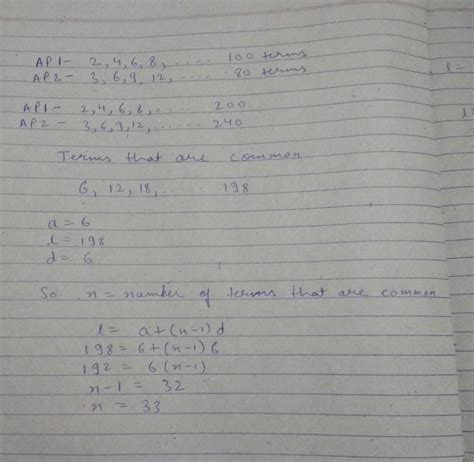 AP1- 2,4,6,8, ..... 100 terms
AP2- 3,6,9,12, ..... 80 terms
AP1- 2,4,6,8,. ..... 200
AP2- 3,6,9,12,. ..... 240
Terms that are common
6, 12, 18, ..... 198
a = 6
l = 198
d = 6
So n = number of terms that are common
l = a+(n-1)d
198 = 6+(n-1)6
192 = 6(n-1)
n-1 = 32
n = 33
l=